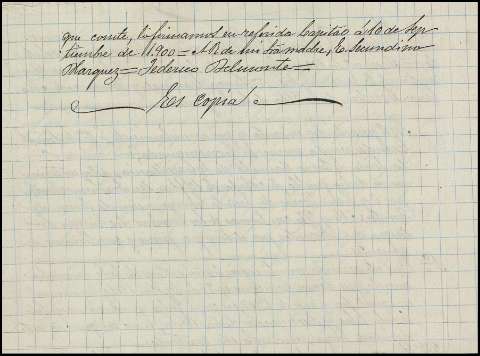 que conste, lo firmamos en referida Capital á 10 de Sep-
tiembre de 1.900 = A R de mi Sra madre, L. Secundino
Marquez = Federico Belmonte =
Es copia